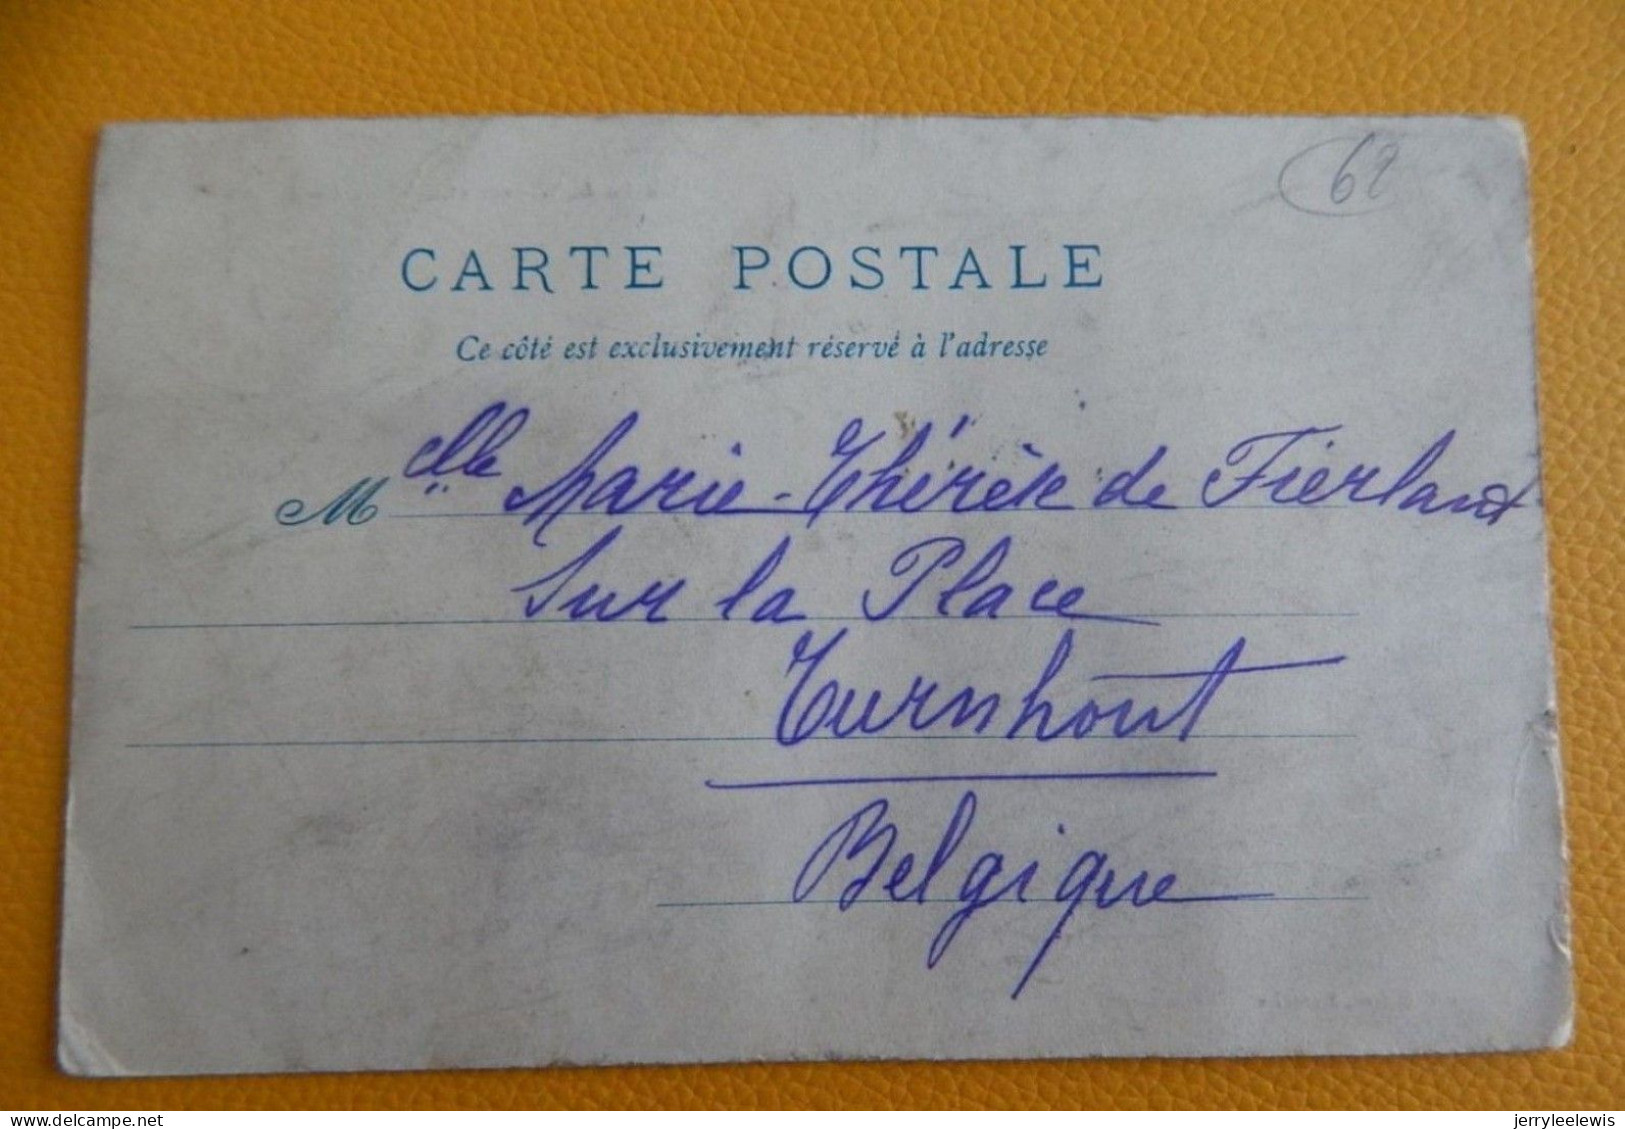 62
CARTE POSTALE
Ce côté est exclusivement réservé à l'adresse
Melle Marie-Thérèse de Fierlant
Sur la Place
Turnhout
Belgique
delcampe.net
jerryleelewis